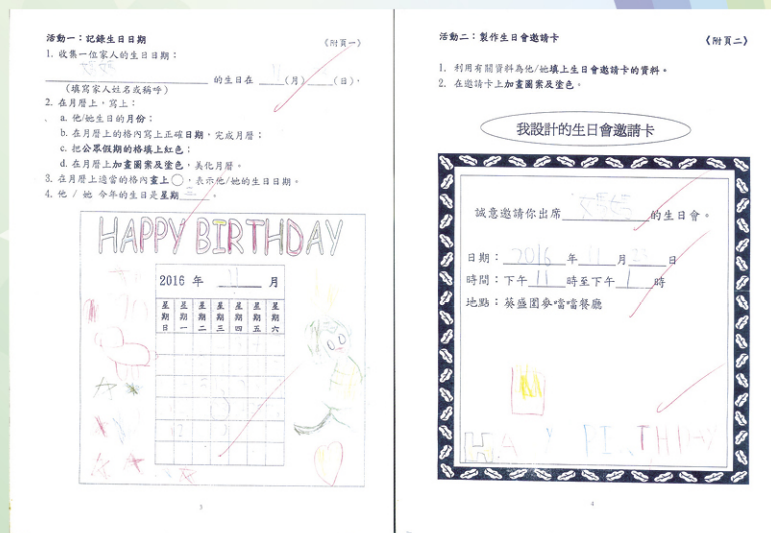 活動一：記錄生日日期
《附頁一》
1. 收集一位家人的生日日期：
的生日在 11 (月) (日)，
(填寫家人姓名或稱呼)
2. 在月曆上，寫上：
a. 他/她生日的月份；
b. 在月曆上的格內寫上正確日期，完成月曆；
c. 把公眾假期的格填上紅色；
d. 在月曆上加畫圖案及塗色，美化月曆。
3. 在月曆上適當的格內畫上○，表示他/她的生日日期。
4. 他 / 她 今年的生日是星期三。
HAPPY BIRTHDAY
2016 年 11 月
星期日 星期一 星期二 星期三 星期四 星期五 星期六
3
活動二：製作生日會邀請卡
《附頁二》
1. 利用有關資料為他/她填上生日會邀請卡的資料。
2. 在邀請卡上加畫圖案及塗色。
我設計的生日會邀請卡
誠意邀請你出席 的生日會。
日期：2016 年 11 月 23 日
時間：下午 11 時至下午 1 時
地點：葵盛圍麥噹噹餐廳
4